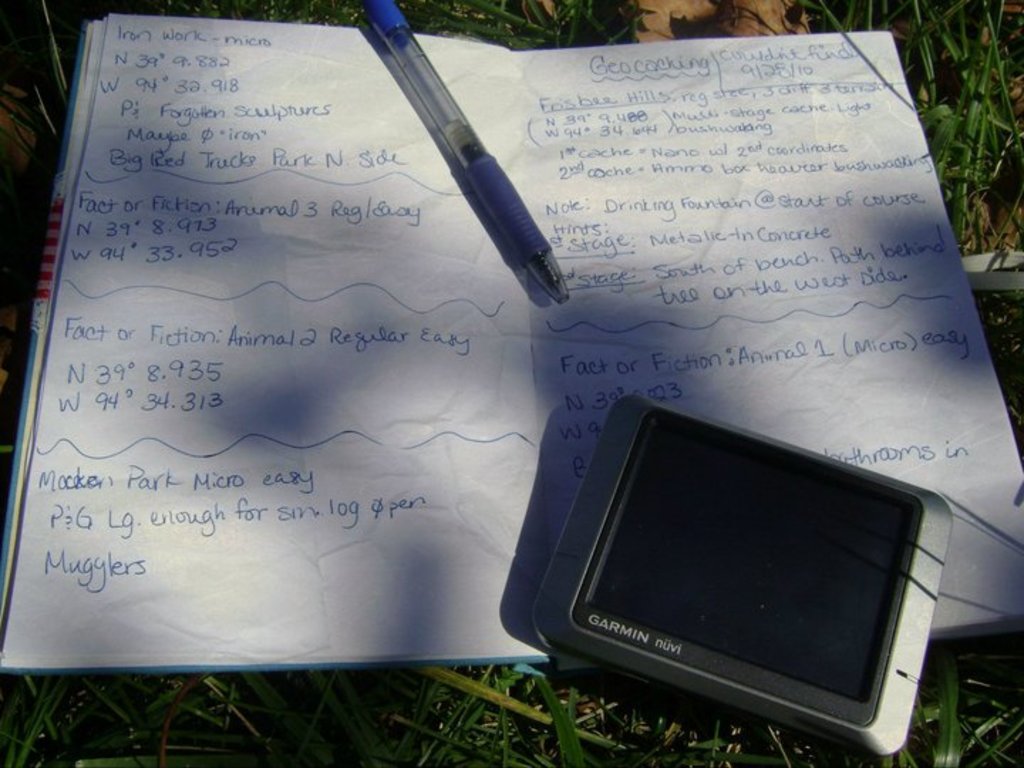 Iron Work - micro
N 39° 9.882
W 94° 32.918
P: Forgotten Sculptures
Maybe Ø "iron"
Big Red Trucks Park N Side
Fact or Fiction: Animal 3 Reg/Easy
N 39° 8.973
W 94° 33.952
Fact or Fiction: Animal 2 Regular Easy
N 39° 8.935
W 94° 34.313
Macken Park Micro easy
P&G Lg. enough for sm. log Ø pen
Mugglers
Geocaching / Couldn't find
9/28/10
Frisbee Hills, reg size, 3 diff 3 terrain
(N 39° 9.488 ) Multi-stage cache. Light
(W 94° 34.644 / bushwaking
1st cache = Nano w/ 2nd coordinates
2nd cache = Ammo box heavier bushwaking
Note: Drinking Fountain @ Start of course
Hints:
Stage: Metalic-In Concrete
Stage: South of bench. Path behind
tree on the west side.
Fact or Fiction: Animal 1 (Micro) easy
N 39°
W 9
bathrooms in
GARMIN nüvi